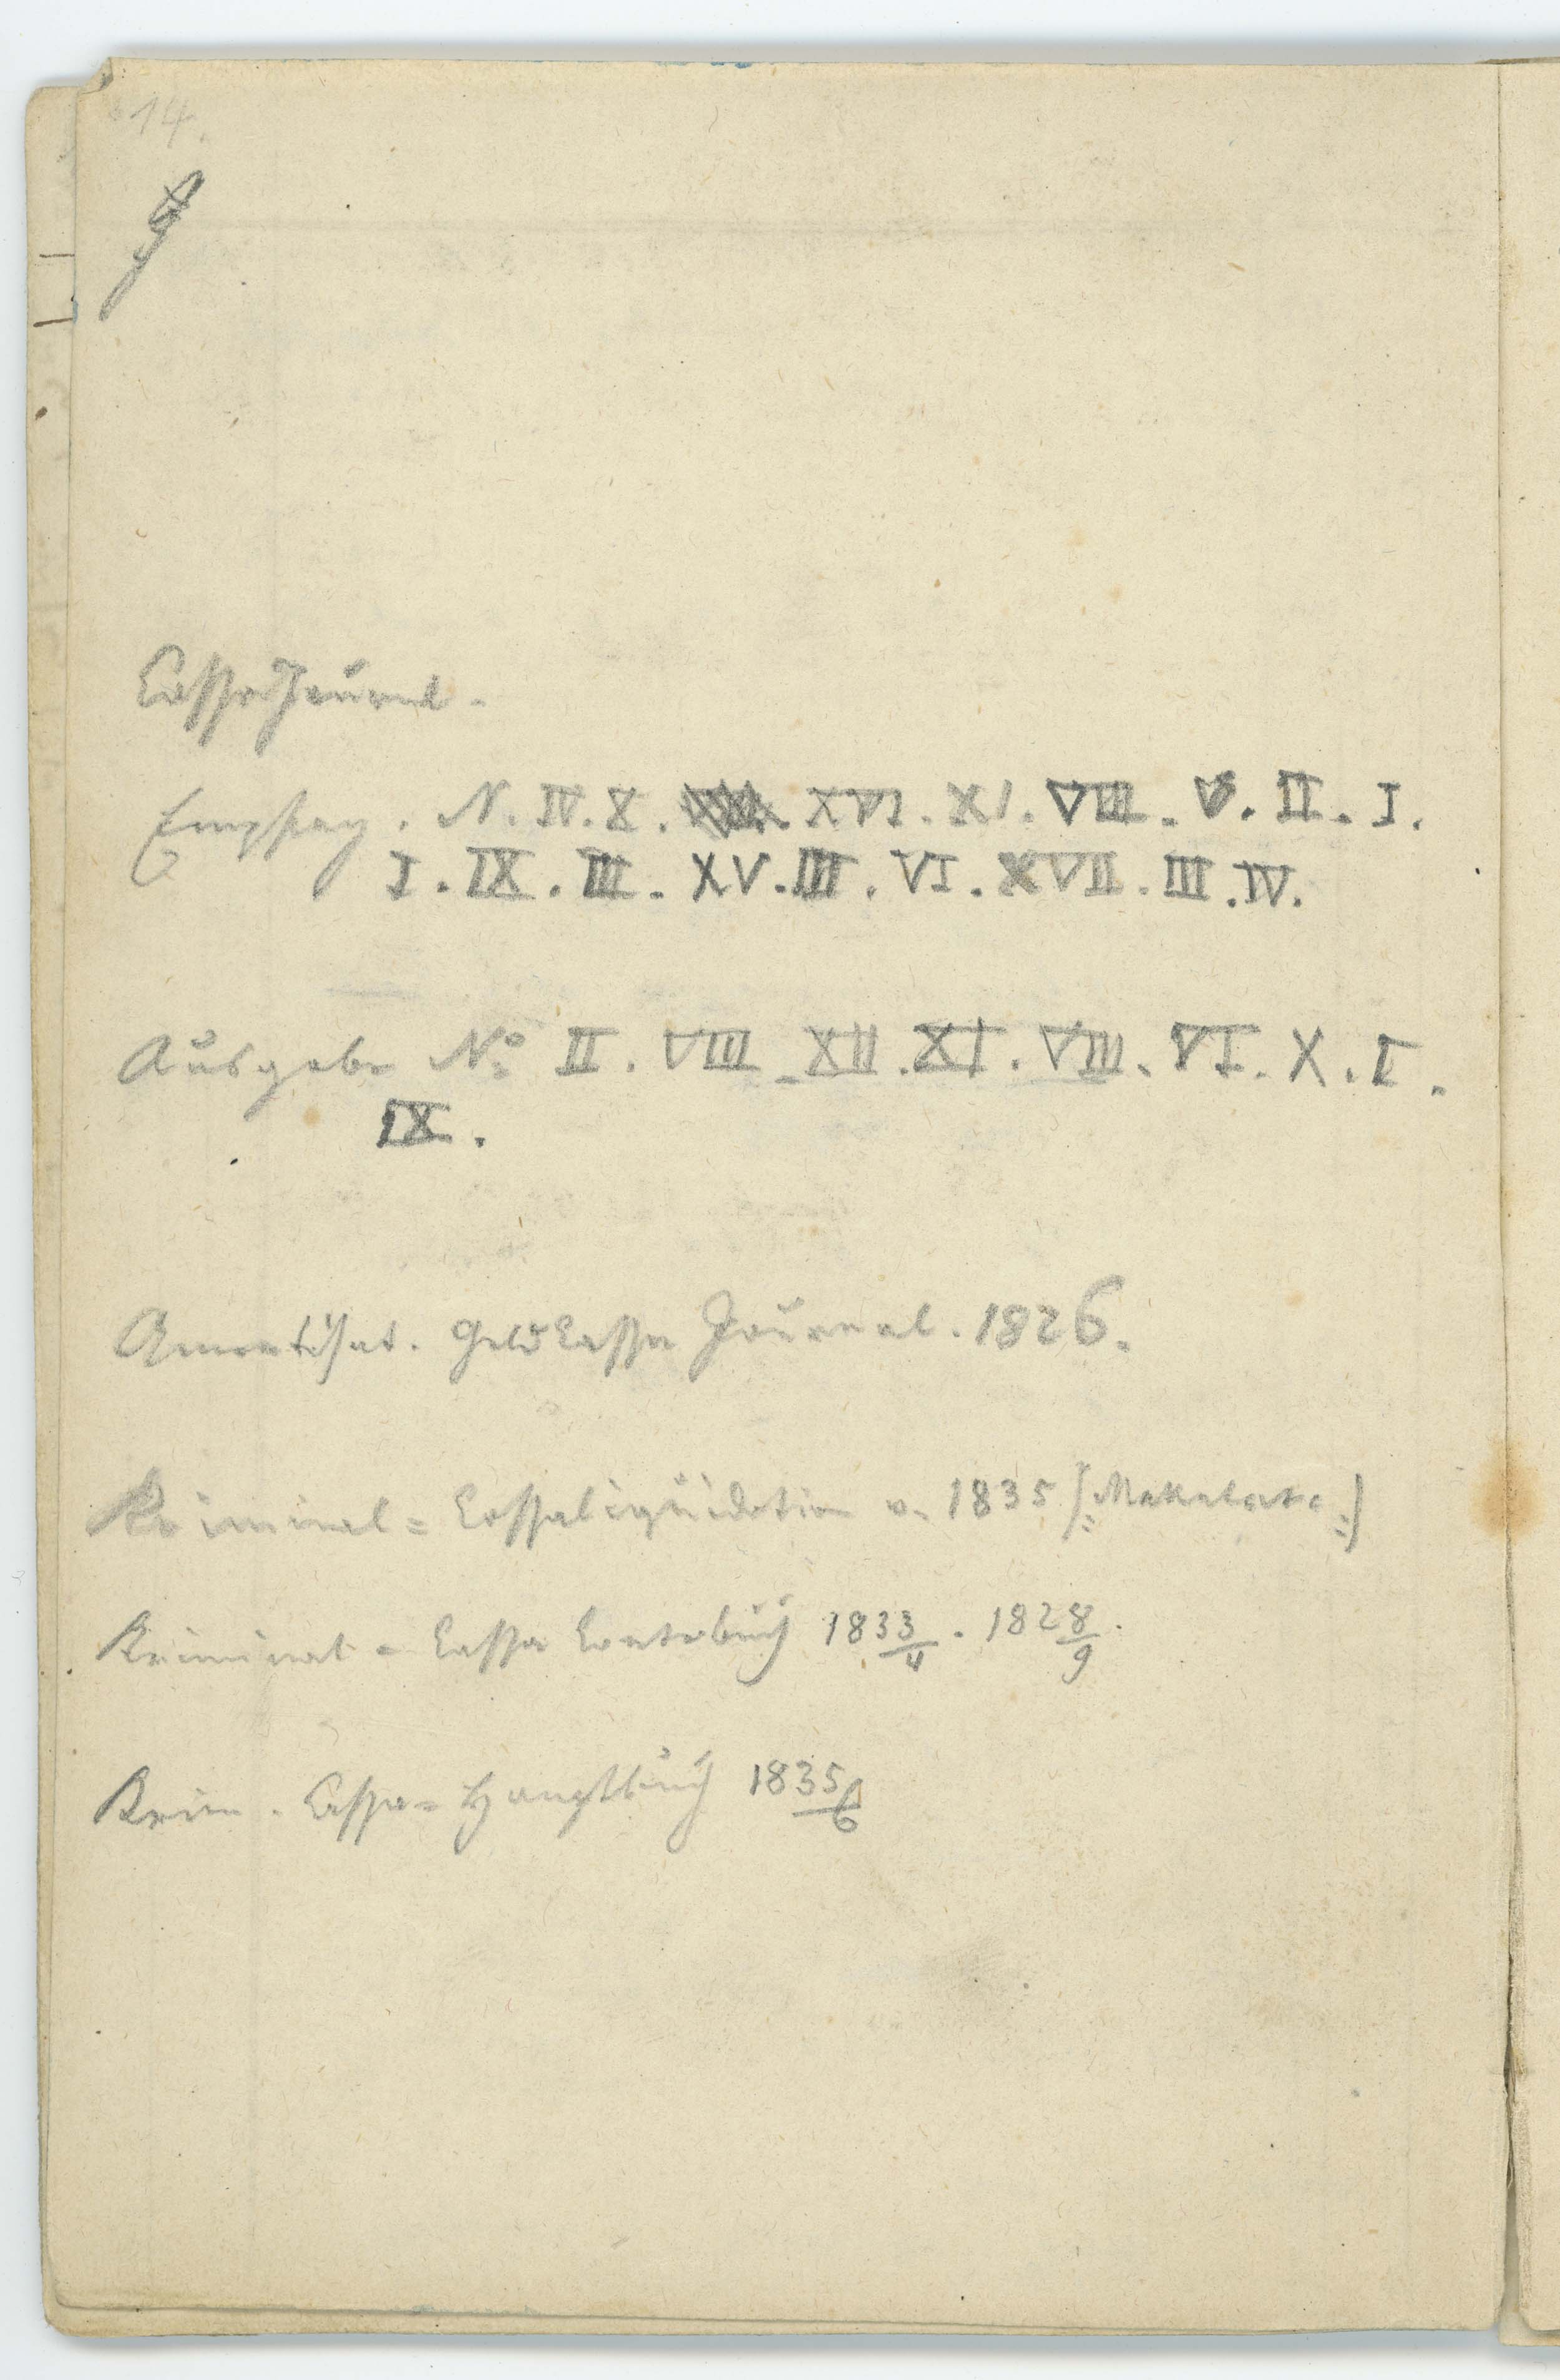 14.
CassaJournal.
Empfang. N. IV. X. XVI. XI. VIII. V. II. I.
I. IX. III. XV. III. VI. XVII. III. IV.
Ausgabe No II. VIII. XII. XI. VIII. VI. X. I.
IX.
Amortisat. GeldCassa Journal. 1826.
Kriminal= Cassaliquidation v. 1835 [: Makulata :]
Kriminal= Cassa Contobuch 1833/4. 1828/9.
Krim. Cassa= Hauptbuch 1835/6